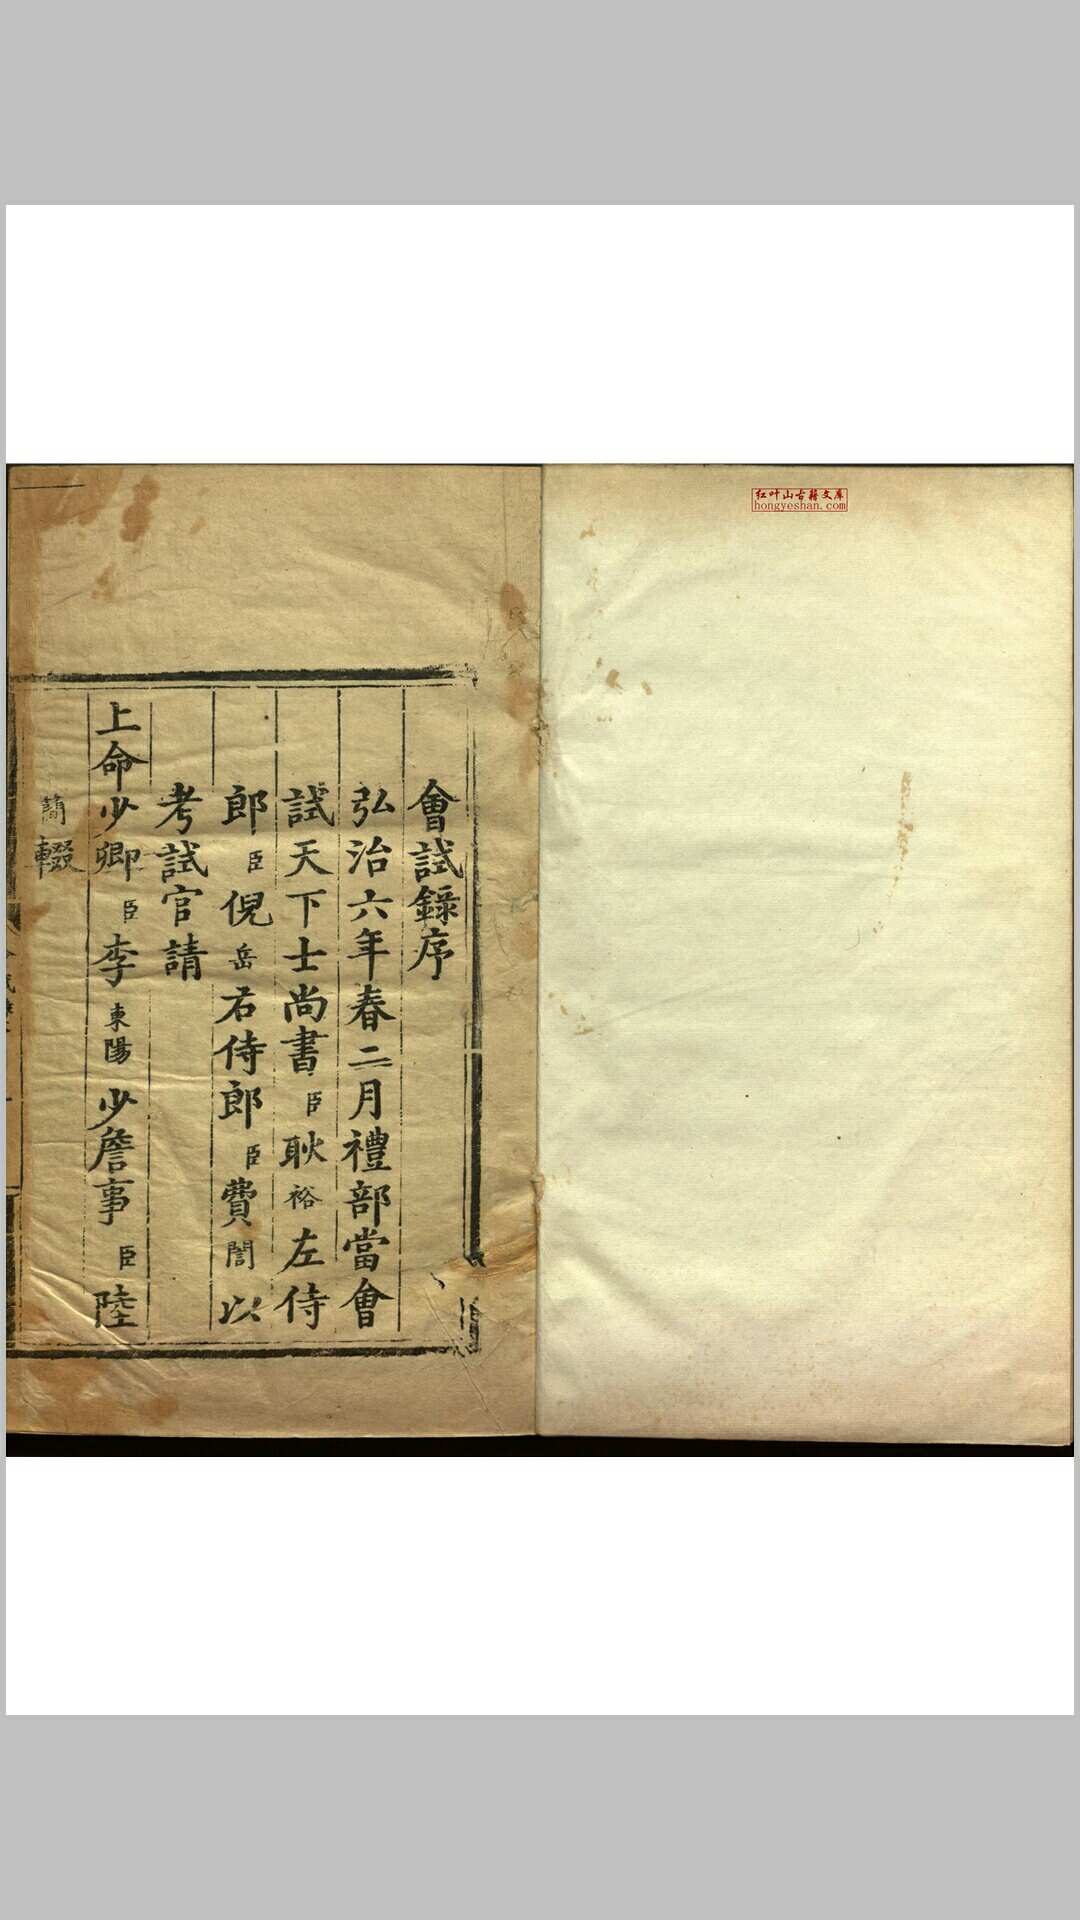 红叶山古籍文库
hongyeshan.com
會試錄序
弘治六年春二月禮部當會
試天下士尚書臣耿裕左侍
郎臣倪岳右侍郎臣費誾以
考試官請
上命少卿臣李東陽少詹事臣陸
簡輟